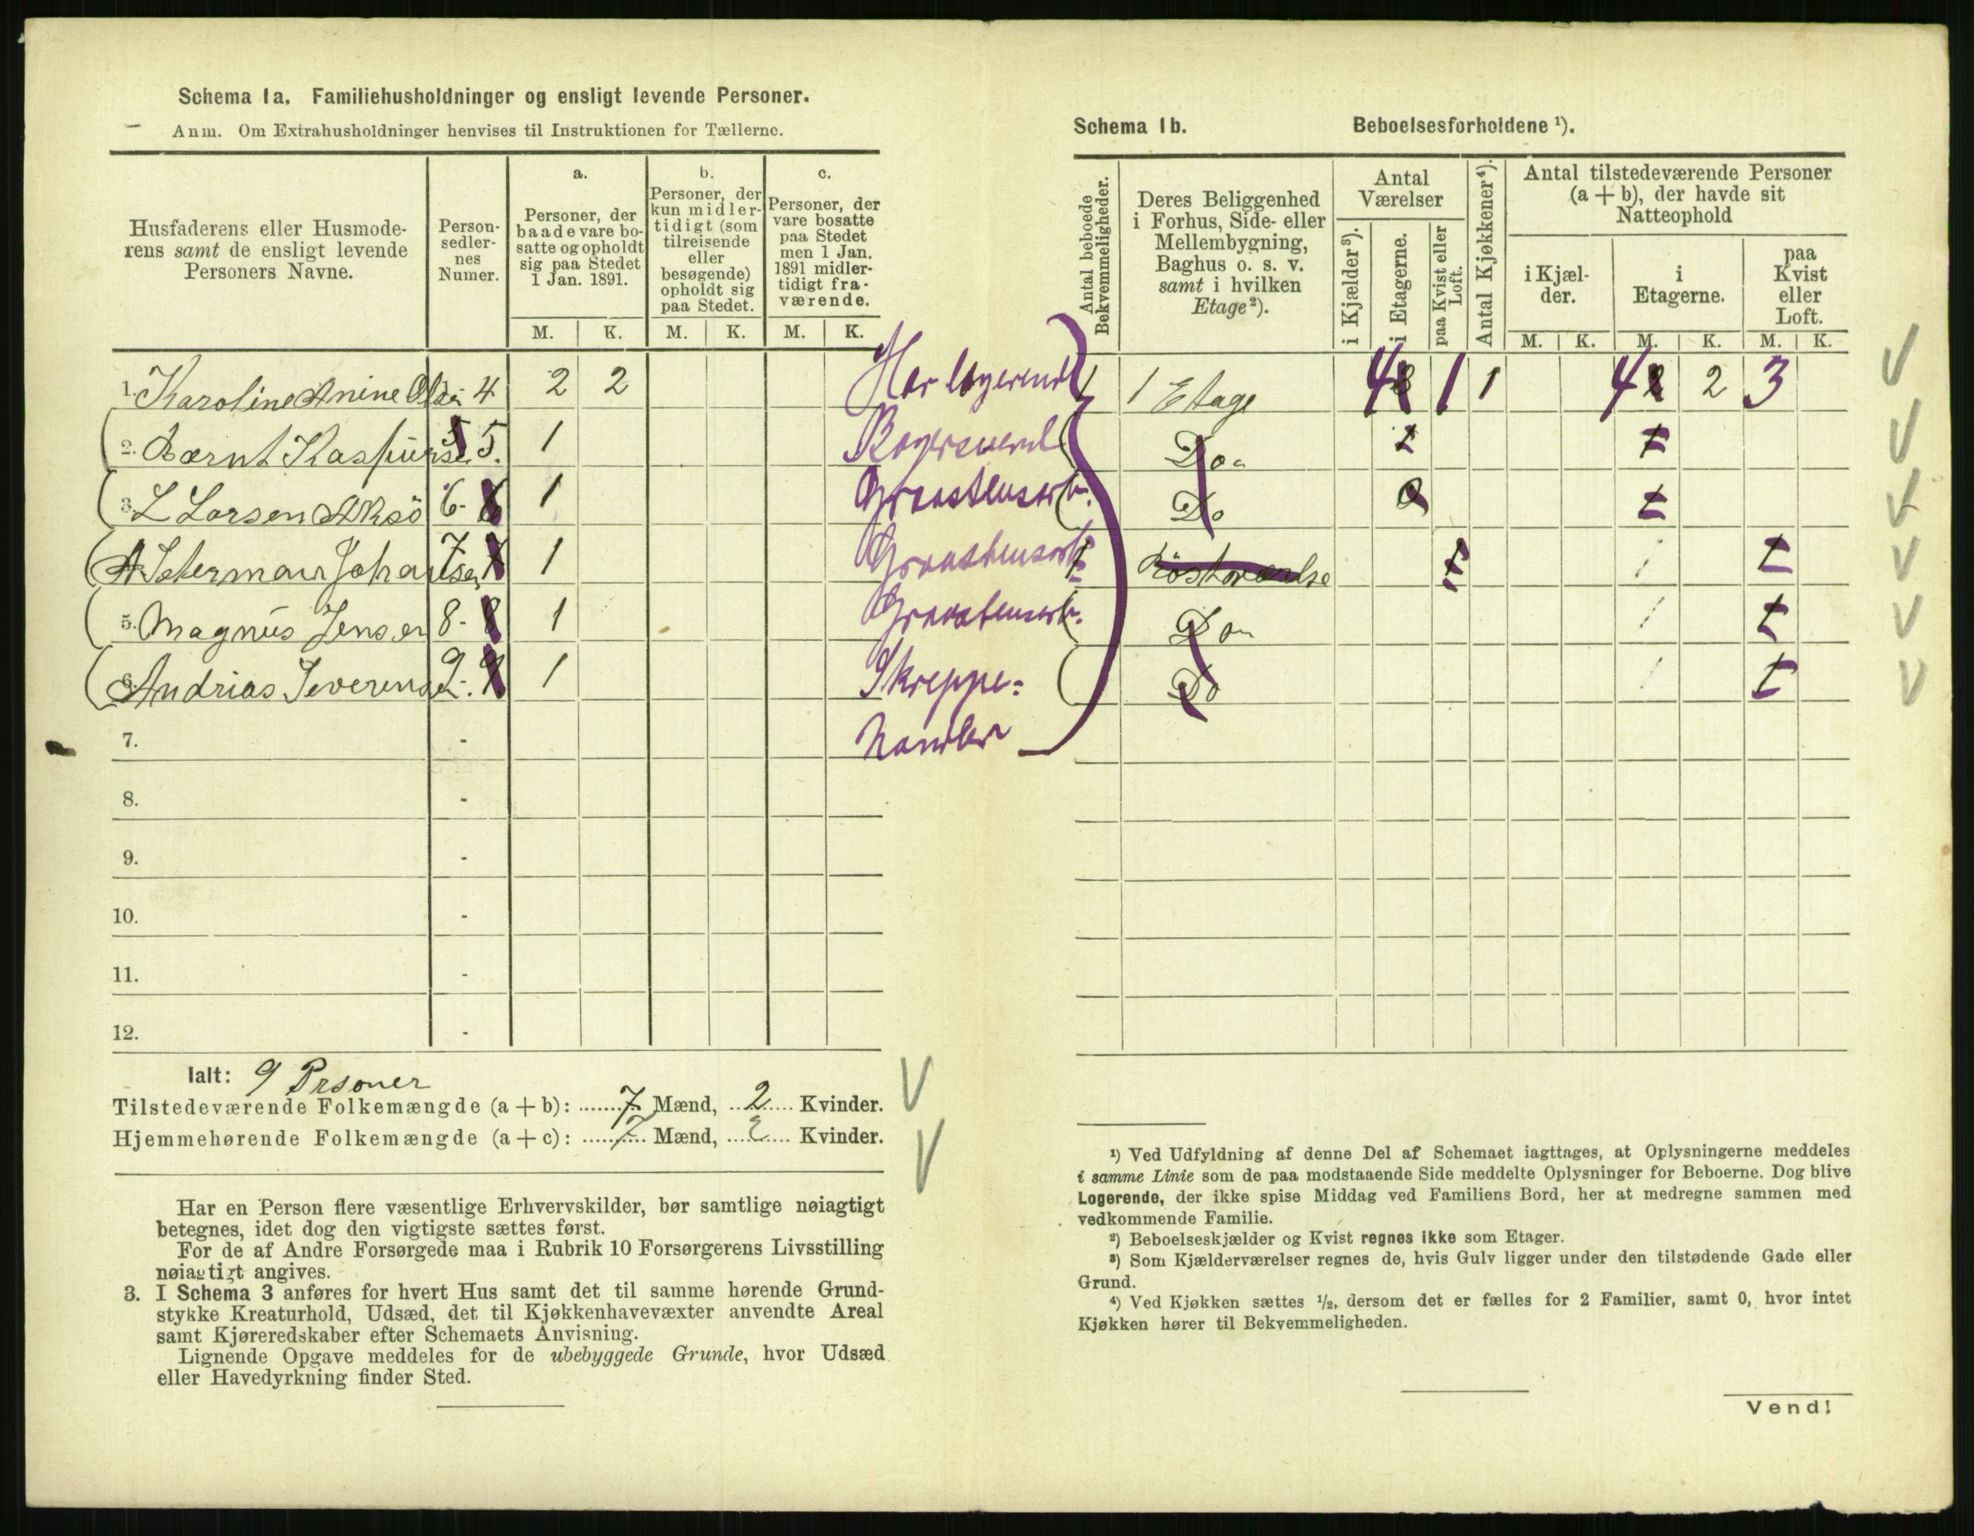 Schema 1a. Familiehusholdninger og ensligt levende Personer.
Anm. Om Extrahusholdninger henvises til Instruktionen for Tællerne.
Husfaderens eller Husmoderens samt de ensligt levende Personers Navne.
Personsedlernes Numer.
a.
Personer, der baade vare bosatte og opholdt sig paa Stedet 1 Jan. 1891.
b.
Personer, der kun midlertidigt (som tilreisende eller besøgende) opholdt sig paa Stedet.
c.
Personer, der vare bosatte paa Stedet men 1 Jan. 1891 midlertidigt fraværende.
M. K. M. K. M. K.
1. Karoline Anine - 4 2 2 Har logerende
2. Bærnt 5. 1
3. L Larsen 6- 1 Graastensarb.
Johansen 7- 1 Graastensarb.
5. Magnus Jensen 8- 8 1 Graastensarb.
6. Andrias Severensen 9- 9 1 Skreppe-
7. - handler
8. -
9. -
10. -
11. -
12. -
Ialt: 9 Prsoner
Tilstedeværende Folkemængde (a + b): 7 Mænd, 2 Kvinder.
Hjemmehørende Folkemængde (a + c): 7 Mænd, 2 Kvinder.
Har en Person flere væsentlige Erhvervskilder, bør samtlige nøiagtigt
betegnes, idet dog den vigtigste sættes først.
For de af Andre Forsørgede maa i Rubrik 10 Forsørgerens Livsstilling
nøiagtigt angives.
3. I Schema 3 anføres for hvert Hus samt det til samme hørende Grund-
stykke Kreaturhold, Udsæd, det til Kjøkkenhavevæxter anvendte Areal
samt Kjøreredskaber efter Schemaets Anvisning.
Lignende Opgave meddeles for de ubebyggede Grunde, hvor Udsæd
eller Havedyrkning finder Sted.
Schema 1b. Beboelsesforholdene ¹).
Antal beboede Bekvemmeligheder.
Deres Beliggenhed i Forhus, Side- eller Mellembygning, Baghus o. s. v. samt i hvilken Etage²).
Antal Værelser
i Kjælder³).
i Etagerne.
paa Kvist eller Loft.
Antal Kjøkkener⁴).
Antal tilstedeværende Personer (a + b), der havde sit Natteophold
i Kjælder.
i Etagerne.
paa Kvist eller Loft.
M. K. M. K. M. K.
1 1 Etage 4 1 1 4 2 3
Do 2
Do 0
Do
Do
¹) Ved Udfyldning af denne Del af Schemaet iagttages, at Oplysningerne meddeles
i samme Linie som de paa modstaaende Side meddelte Oplysninger for Beboerne. Dog blive
Logerende, der ikke spise Middag ved Familiens Bord, her at medregne sammen med
vedkommende Familie.
²) Beboelseskjælder og Kvist regnes ikke som Etager.
³) Som Kjælderværelser regnes de, hvis Gulv ligger under den tilstødende Gade eller
Grund.
⁴) Ved Kjøkken sættes ½, dersom det er fælles for 2 Familier, samt 0, hvor intet
Kjøkken hører til Bekvemmeligheden.
Vend!